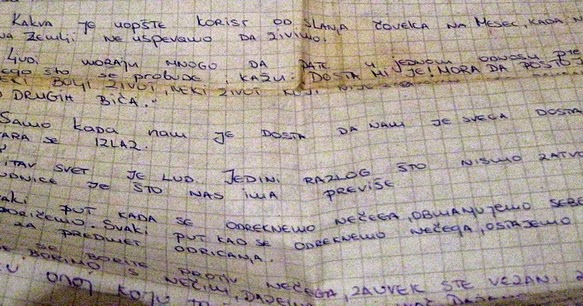 KAKVA JE UOPŠTE KORIST OD SLANJA ČOVEKA NA MESEC, KADA
NA ZEMLJI NE USPEVAMO DA ŽIVIMO.
LJUDI MORAJU MNOGO DA PATE U JEDNOM ODNOSU PRE
NEGO ŠTO SE PROBUDE I KAŽU: DOSTA MI JE! MORA DA POSTOJI
BOLJI ŽIVOT, NEKI ŽIVOT KOJI NIJE
DRUGIH BIĆA."
SAMO KADA NAM JE DOSTA DA NAM JE SVEGA DOSTA
SE IZLAZ.
ČITAV SVET JE LUD. JEDINI RAZLOG ŠTO NISMO ZATVO
LUDNICE JE ŠTO NAS IMA PREVIŠE.
SVAKI PUT KADA SE ODREKNEMO NEČEGA, OBMANJUJEMO SEBE
PORIČEMO. SVAKI PUT KAO SE ODREKNEMO NEČEGA, OSTAJEMO
ZA PREDMET ODRICANJA.
SE BORITE PROTIV NEČEGA, ZAUVEK STE VEZANI.
BORIMO S NEČIM, DAJEMO
U ONOJ KOJU